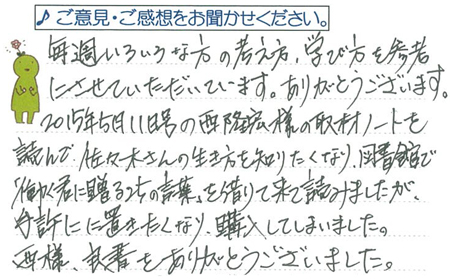 ♪ご意見・ご感想をお聞かせください。
毎週いろいろな方の考え方、学び方を参考
にさせていただいています。ありがとうございます。
2015年5月11日号の西隆宏様の取材ノートを
読んで、佐々木さんの生き方を知りたくなり、図書館で
「働く君に贈る25の言葉」を借りて来て読みましたが、
手許にに置きたくなり、購入してしまいました。
西様、良書をありがとうございました。